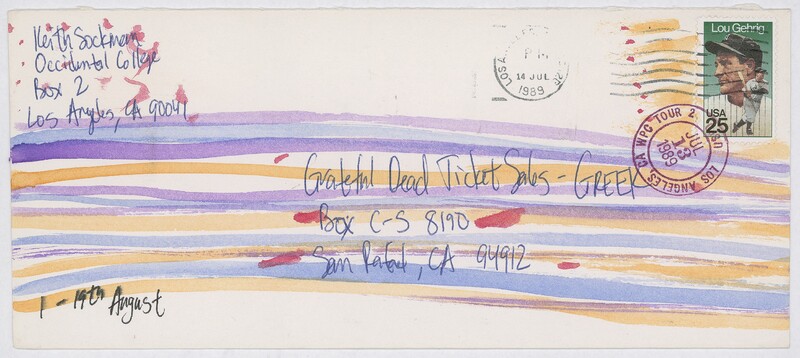 Keith Sockman
Occidental College
Box 2
Los Angeles, CA 90041
LOS ANGELES
PM
14 JUL
1989
Lou Gehrig
USA
25
LOS ANGELES CA WPC TOUR 2
JUL
13
1989
Grateful Dead Ticket Sales - GREEK
Box C-S 8190
San Rafael, CA 94912
1 - 19th August